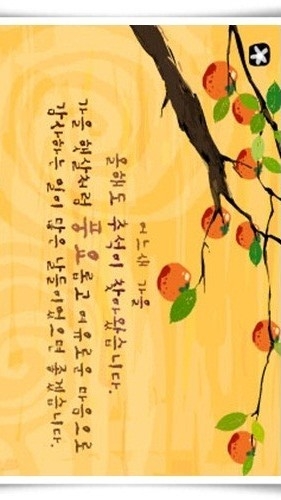 어느새 가을
올해도 추석이 찾아왔습니다.
가을 햇살처럼 풍요롭고 여유로운 마음으로
감사하는 일이 많은 날들이었으면 좋겠습니다.